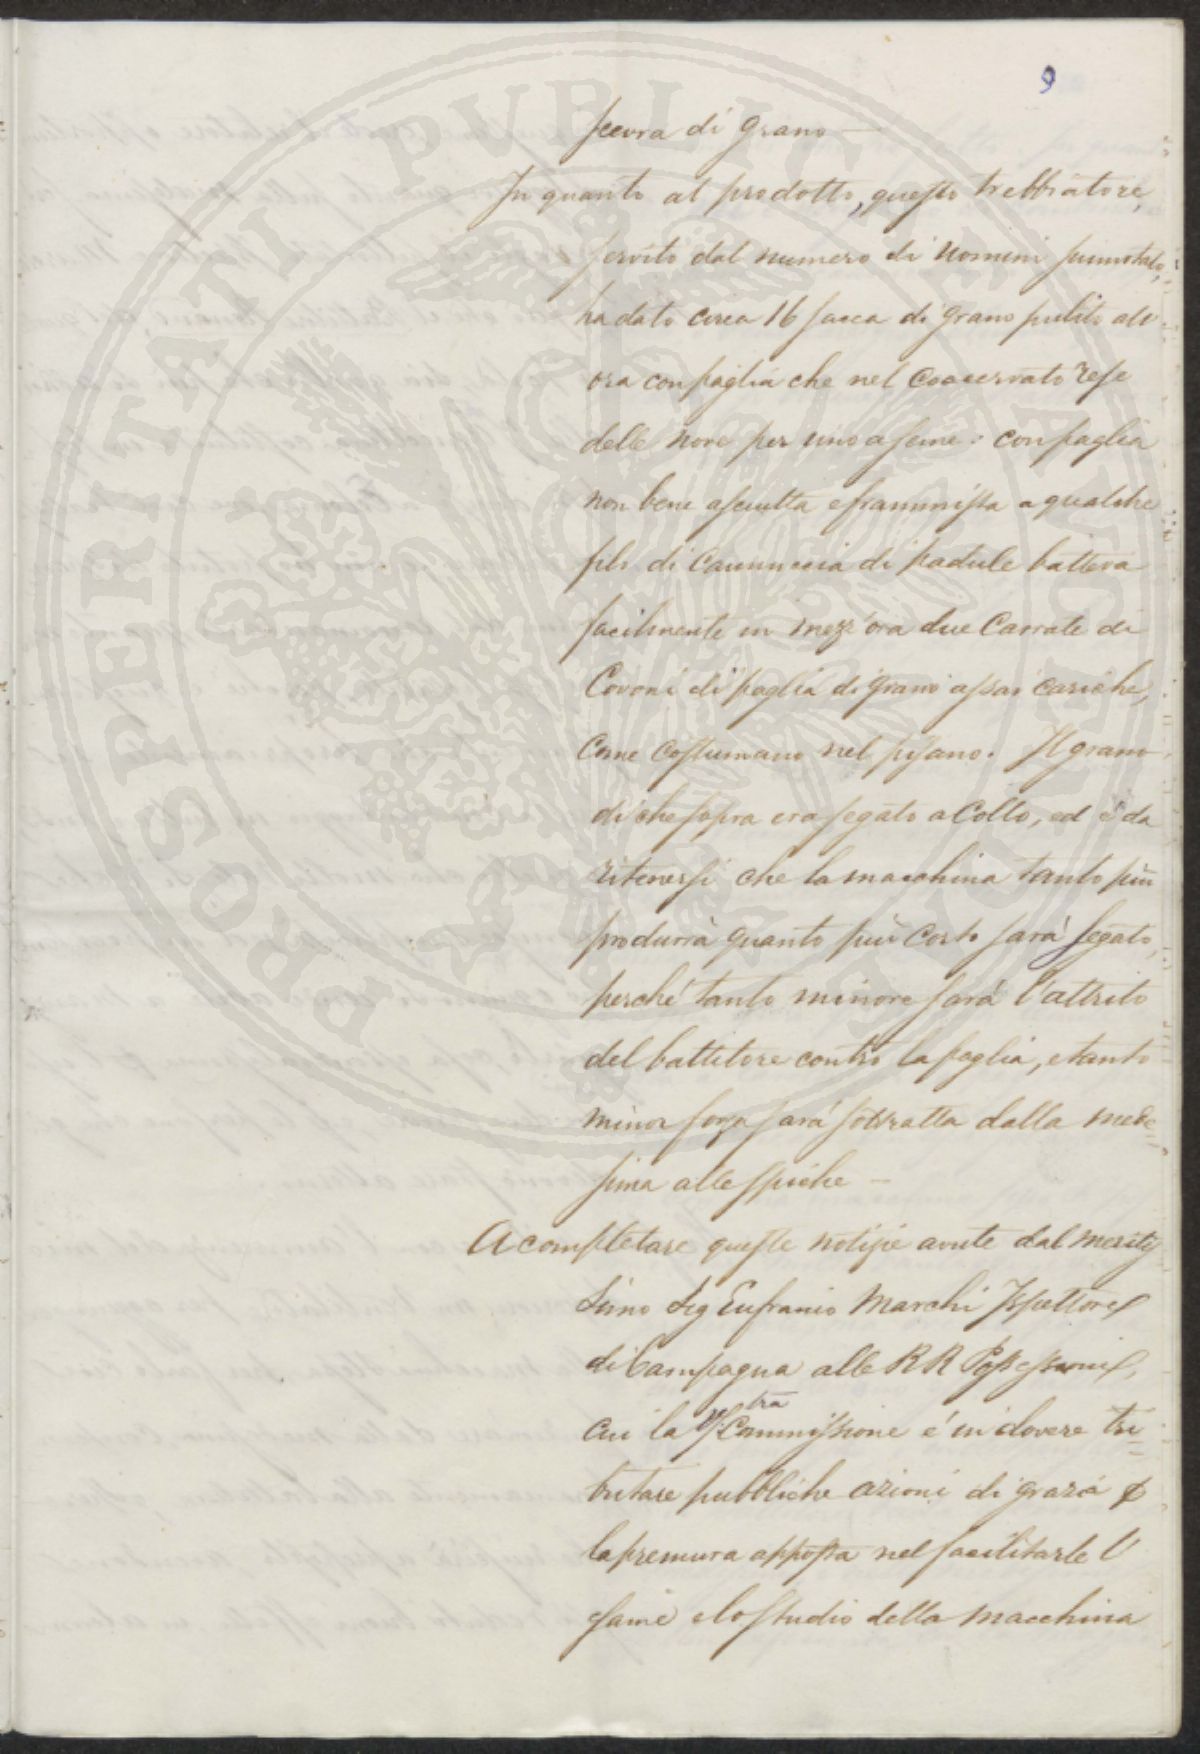 9
scevra di grano —
In quanto al prodotto, questo trebbiatore,
servito dal numero di uomini sunnotato,
ha dato circa 16 sacca di grano pulito all'
ora con paglia che nel coacervato rese
delle nove per uno a seme: con paglia
non bene asciutta e frammista a qualche
filo di cannuccia di padule batteva
facilmente in mezz'ora due Carrate di
Covoni di paglia di grano assai cariche,
come costumano nel pisano. Il grano
di che sopra era segato a collo, ed è da
ritenersi che la macchina tanto più
produrrà quanto più corto sarà segato,
perché tanto minore sarà l'attrito
del battitore contro la paglia, e tanto
minor forza sarà sottratta dalla mede=
sima alle spiche —
A completare queste notizie avute dal meritis
simo Sig Eufranio Marchi Ispettore
di Campagna alle RR Possessioni,
cui la Commissione è in dovere tri=
butare pubbliche azioni di grazia p
la premura apposta nel facilitarle l'
esame e lo studio della macchina
PROSPERITATI PUBLICAE AUGENDAE